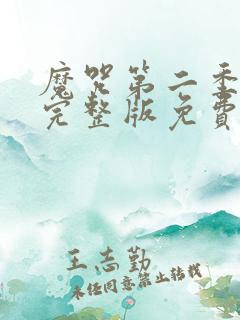 魔咒第二季
完整版免費
王志勤
未经同意禁止转载